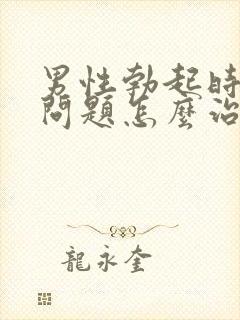 男性勃起時
問題怎麼治
龍永奎